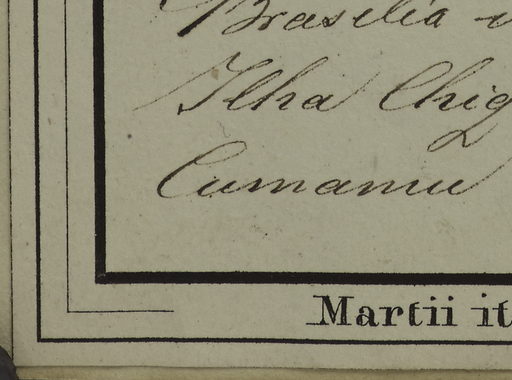 Brasilia
Ilha Chig
Cumamu
Martii it